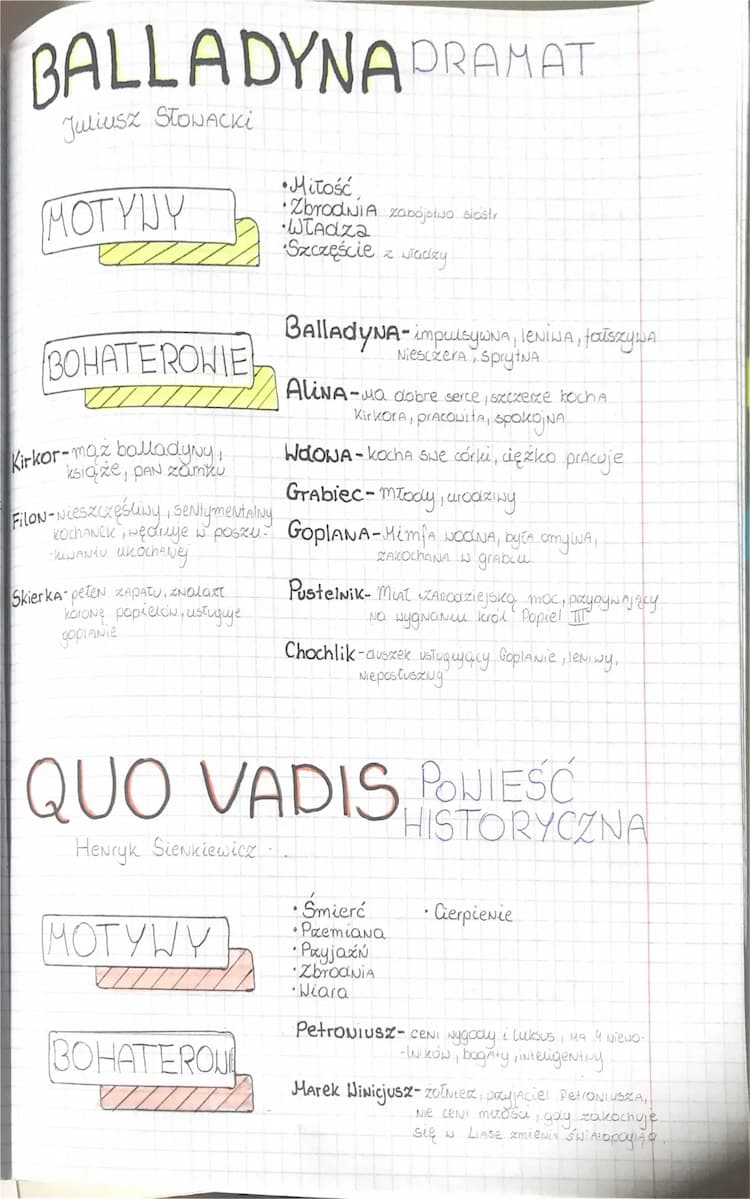 BALLADYNA DRAMAT
Juliusz Słowacki
MOTYWY
• Miłość
• Zbrodnia zabójstwo siostr
• Władza
• Szczęście z władzy
BOHATEROWIE
Balladyna - impulsywna, leniwa, fałszywa
niesczera, sprytna
Alina - ma dobre serce, szczerze kocha
Kirkora, pracowita, spokojna
Wdowa - kocha swe córki, ciężko pracuje
Grabiec - młody, urodziwy
Goplana - Nimfa wodna, była omylna,
zakochana w grabcu
Pustelnik - Miał czarodziejską moc, przygrywający
na wygnaniu król Popiel III
Chochlik - duszek usługujący Goplanie, leniwy,
nieposłuszny
Kirkor - mąż balladyny,
książe, pan zamku
Filon - nieszczęśliwy, sentymentalny
kochanek, wędruje w poszu-
-kiwaniu ukochanej
Skierka - pełen zapału, znalazł
koronę popielów, usługuje
goplanie
QUO VADIS POWIEŚĆ
HISTORYCZNA
Henryk Sienkiewicz
MOTYWY
• Śmierć
• Przemiana
• Przyjaźń
• Zbrodnia
• Wiara
• Cierpienie
BOHATEROWI
Petroniusz - ceni wygody i luksus, ma 4 niewo-
-lników, bogaty, inteligentny
Marek Winicjusz - żołnierz, przyjaciel Petroniusza,
nie ceni miłości, gdy zakochuje
się w zmienia światopogląd